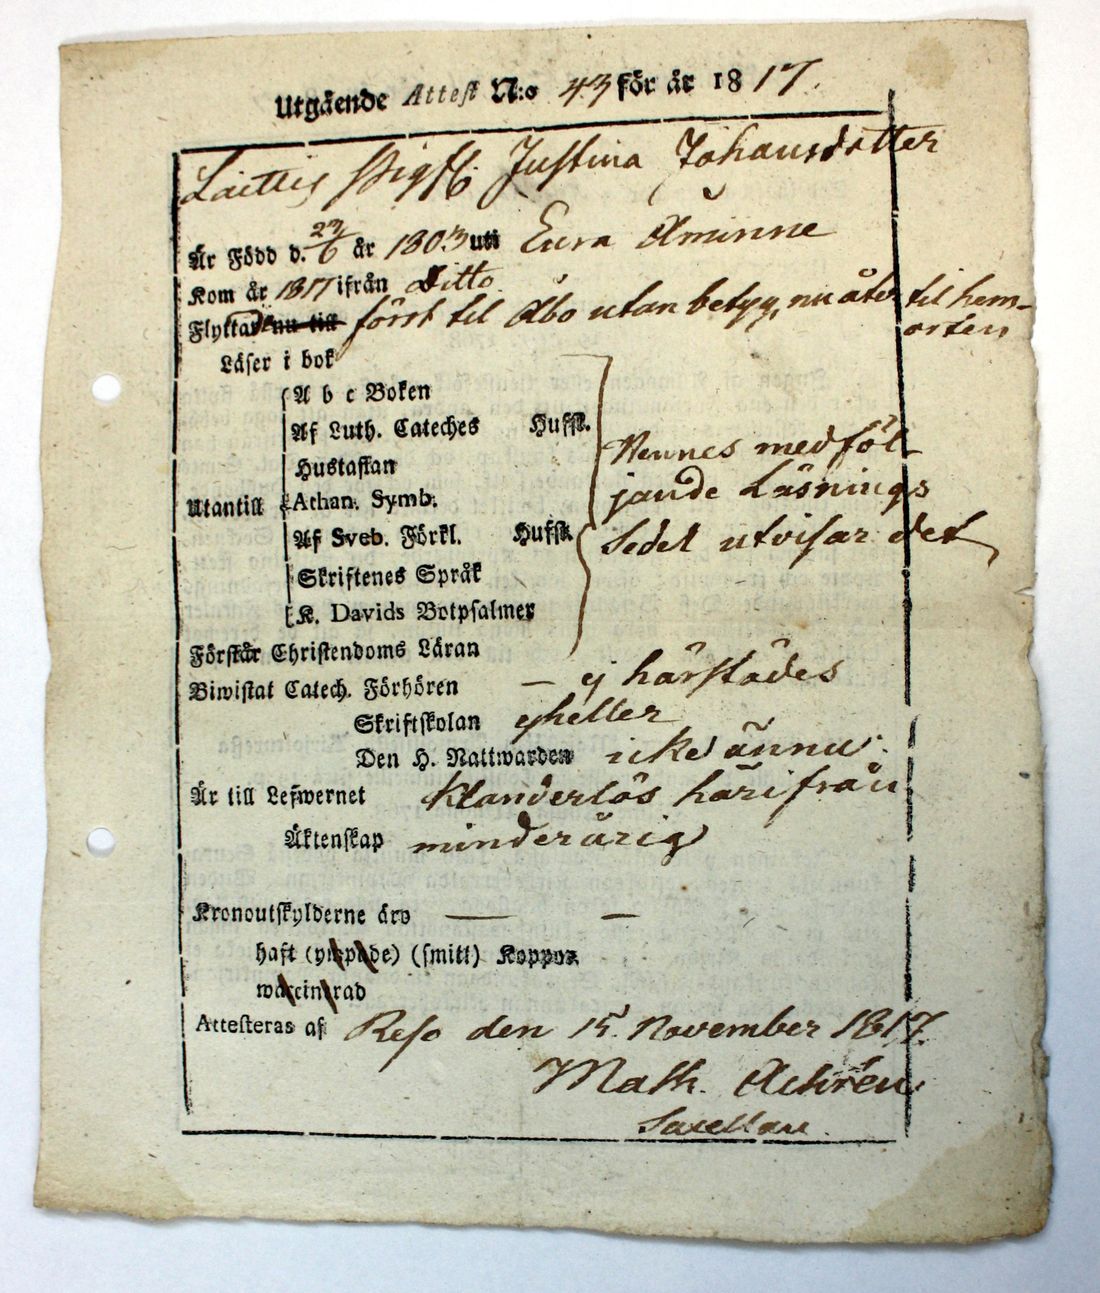 Utgående Attest N:o 43 för år 1817.
Laittis Pigfl. Justina Johansdotter
Är Född d. 23/6 år 1803 uti Eura Åminne
Kom år 1817 ifrån Ditto
Flyttade nu till först til Åbo utan betyg, nu åter til hem-
orten
Läser i bok
A b c Boken
Af Luth. Cateches Hufst.
Hustaflan
Utantill Athan. Symb.
Af Sveb. Förkl. Hufst.
Skriftenes Språk
K. Davids Botpsalmer
Hennes medföl-
jande Läsnings
Sedel utvisar det
Förstår Christendoms Läran
Biwistat Catech. Förhören — ej härstädes
Skriftskolan ej heller
Den H. Nattwarden icke ännu.
Är till Lefwernet Klanderlös härifrån
Äktenskap minderårig
Kronoutskylderne äro — —
haft (ympade) (smitt) Koppor
waccinerad
Attesteras af Reso den 15. November 1817.
Math. Achrén
Sacellan.